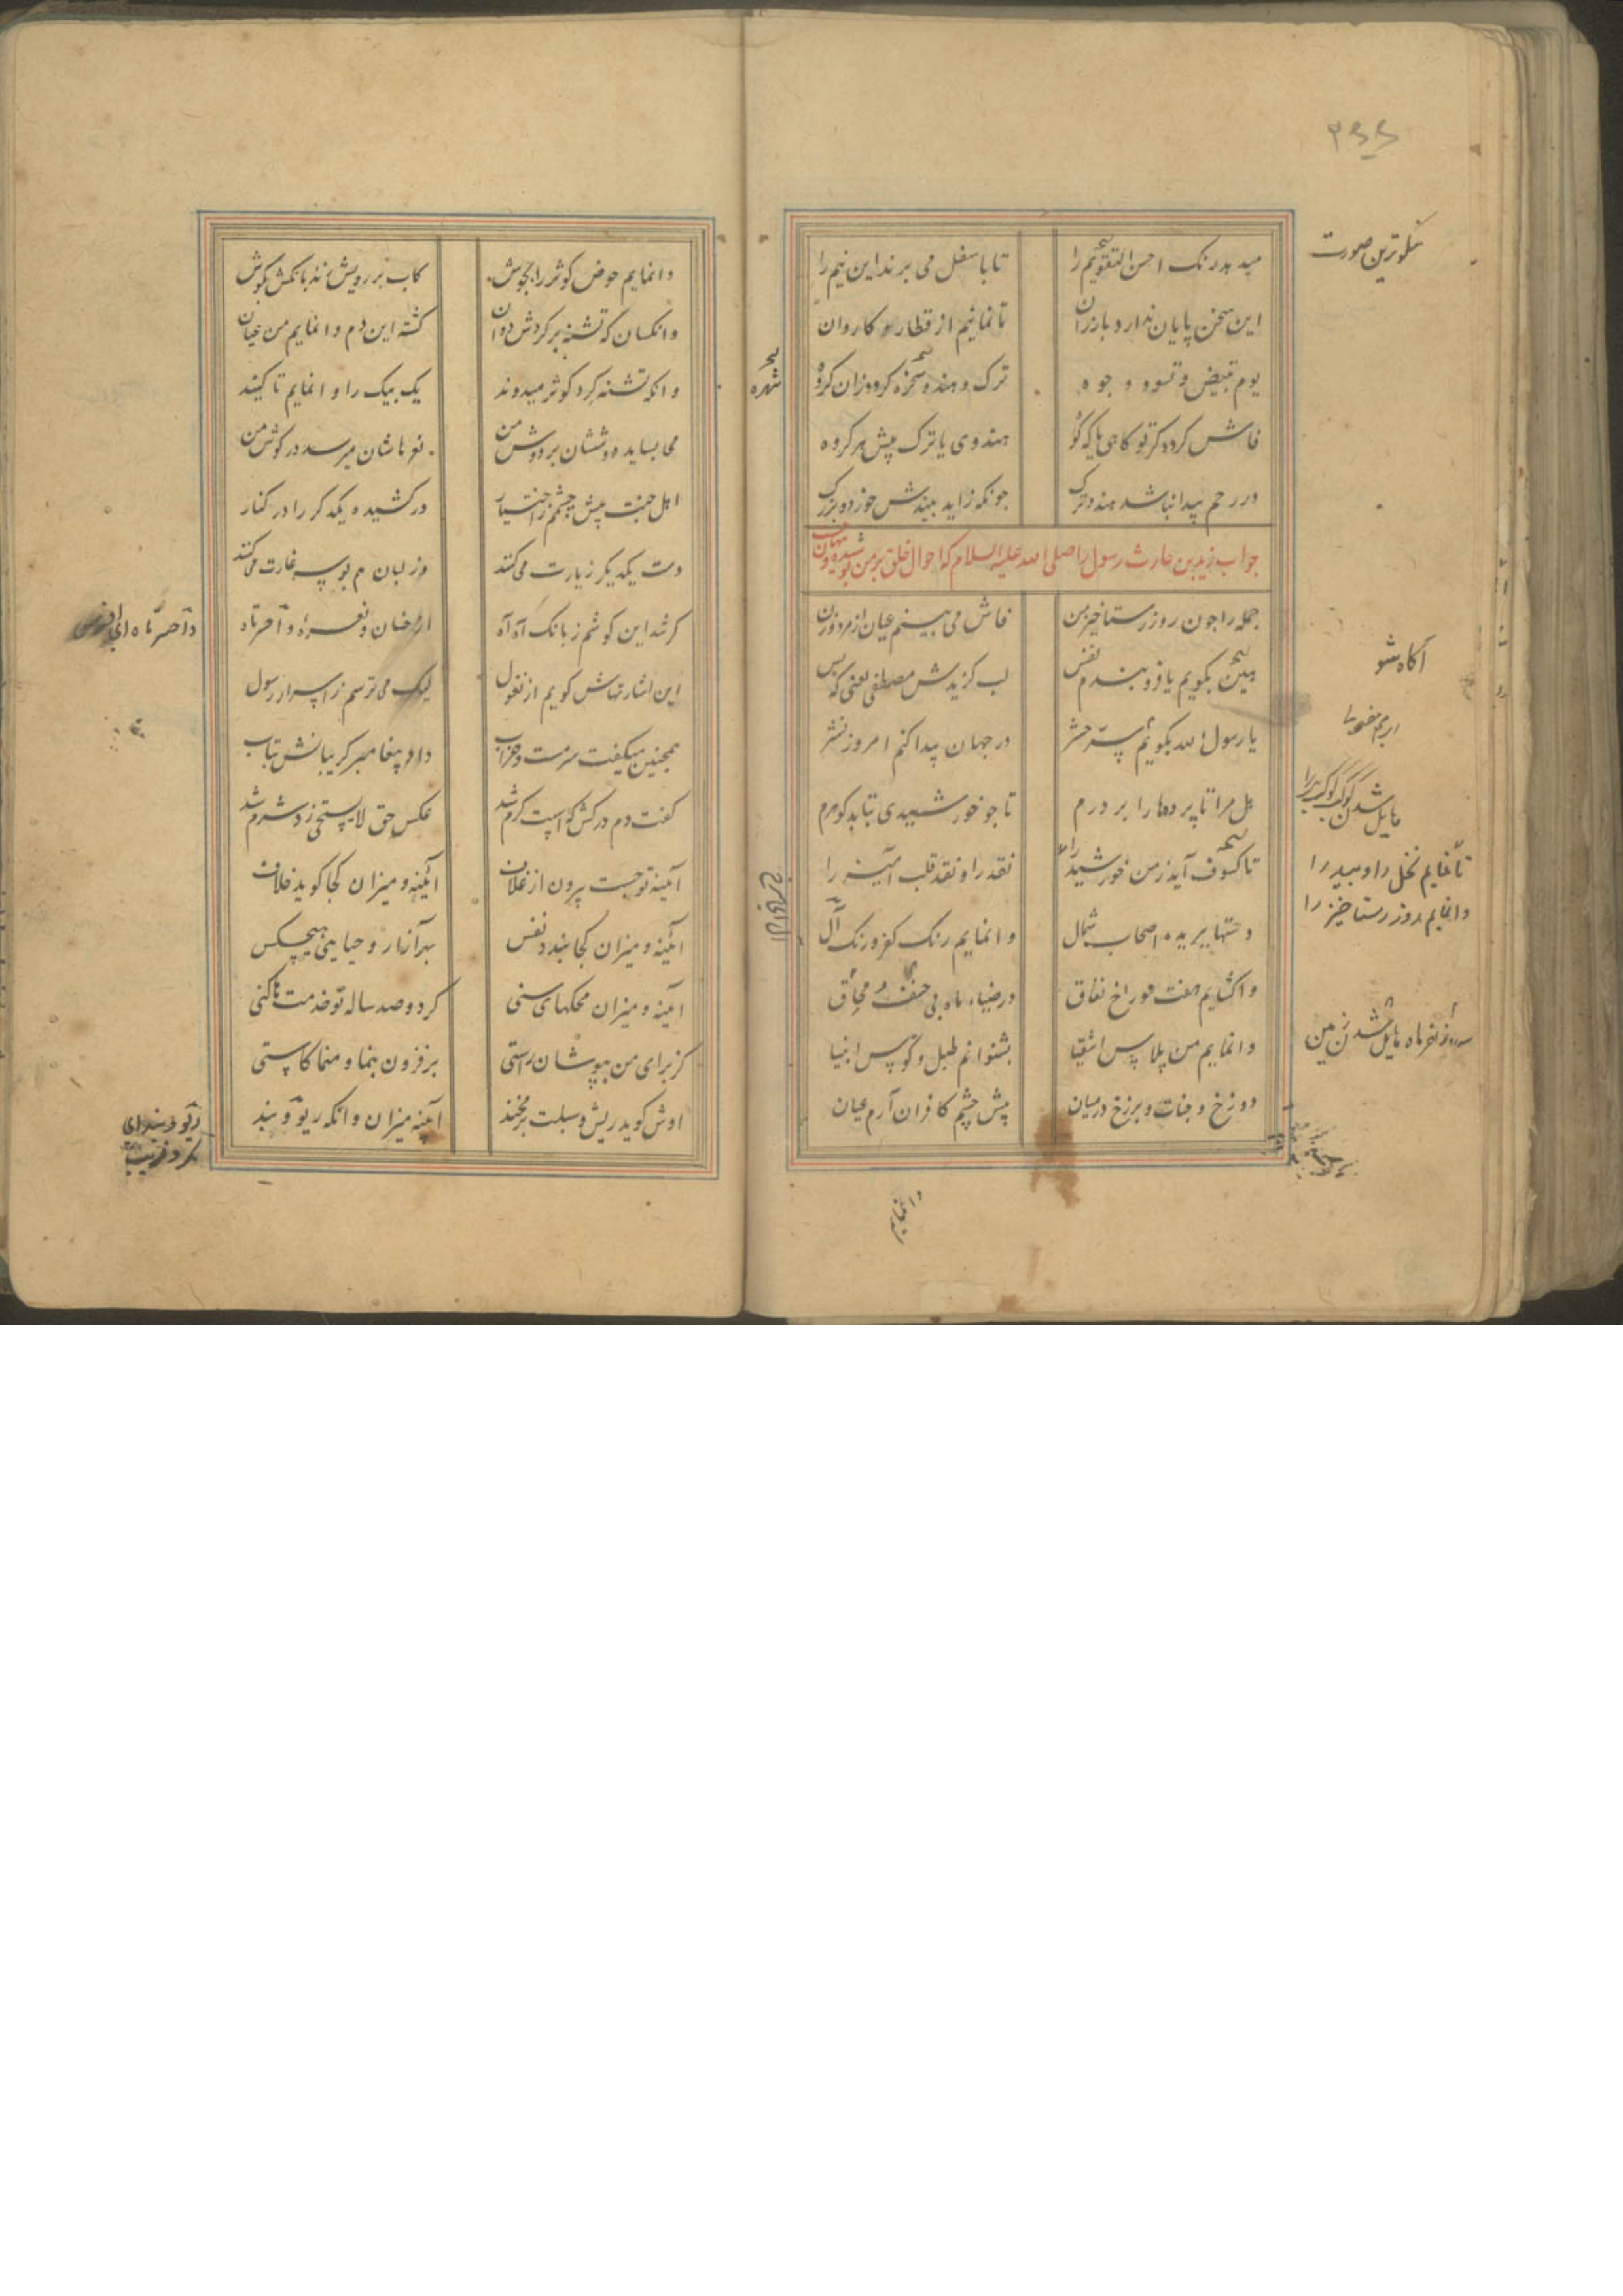 ۳۶۶
میدهد رنک احسن التقویم را
تا باسفل می برند این نیم را
نکوترین صورت
این سخن پایان ندارد باز ران
تا نمانیم از قطار کاروان
یوم تبیض و تسود وجوه
ترک و هندو شهره کردد زان کروه
شهره
فاش کردد کر تو کاهی یا که کوه
هندوی یا ترک پیش هر کروه
در رحم پیدا نباشد هند و ترک
چونکه زاید بیندش خورد و بزرک
جواب زید بن حارث رسول را صلی الله علیه السلام که احوال خلق بر من پوشیده و پنهان
جمله را چون روز رستاخیز من
فاش می بینم عیان از مرد و زن
آکاه شو
هین بکویم یا فرو بندم نفس
لب کزیدش مصطفی یعنی که بس
یا رسول الله بکویم سر حشر
در جهان پیدا کنم امروز نشر
هل مرا تا پرده‌ها را بر درم
تا چو خورشیدی بتابد کوهرم
تا کسوف آید ز من خورشید را
تا نمایم نخل را و بید را
وانمایم روز رستاخیز را
نقد را و نقد قلب آمیز را
دستها ببریده اصحاب شمال
وانمایم رنک کفر و رنک آل
واکشایم هفت سوراخ نفاق
در ضیاء ماه بی خسف و محاق
وانمایم من پلاس اشقیا
بشنوانم طبل و کوس انبیا
دوزخ و جنات و برزخ در میان
پیش چشم کافران آرم عیان
وانمایم
وانمایم حوض کوثر را بجوش
کاب بر رویش زند بانکش بکوش
وانکسان که تشنه بر کردش دوان
کشته این دم وانمایم من عیان
وانکه تشنه کرد کوثر میدوند
یک بیک را وانمایم تا کیند
می بساید دوششان بر دوش من
نعرهاشان میرسد در کوش من
اهل جنت پیش چشمم ز اختیار
در کشیده یکدکر را در کنار
دست یکدیکر زیارت می کنند
وز لبان هم بوسه غارت می کنند
کر شد این کوشم ز بانک آه آه
از خسان و نعره وا حسرتاه
این اشارتهاش کویم از نغول
لیک می ترسم ز اسرار رسول
همچنین میکفت سرمست و خراب
داد پیغامبر کریبانش بتاب
کفت دم درکش که اسبت کرم شد
عکس حق لا یستحی زد شرم شد
آینه تو جست بیرون از غلاف
آینه و میزان کجا کوید خلاف
آینه و میزان کجا بندد نفس
بهر آزار و حیا بینی هیچکس
آینه و میزان محکهای سنی
کر دو صد ساله تو خدمت‌ها کنی
کز برای من بپوشان راستی
بر فزون بنما و منما کاستی
اوش کوید ریش و سبلت بر مخند
آینه میزان وانکه ریو و بند
ریو و بند ای
مکر و فریب